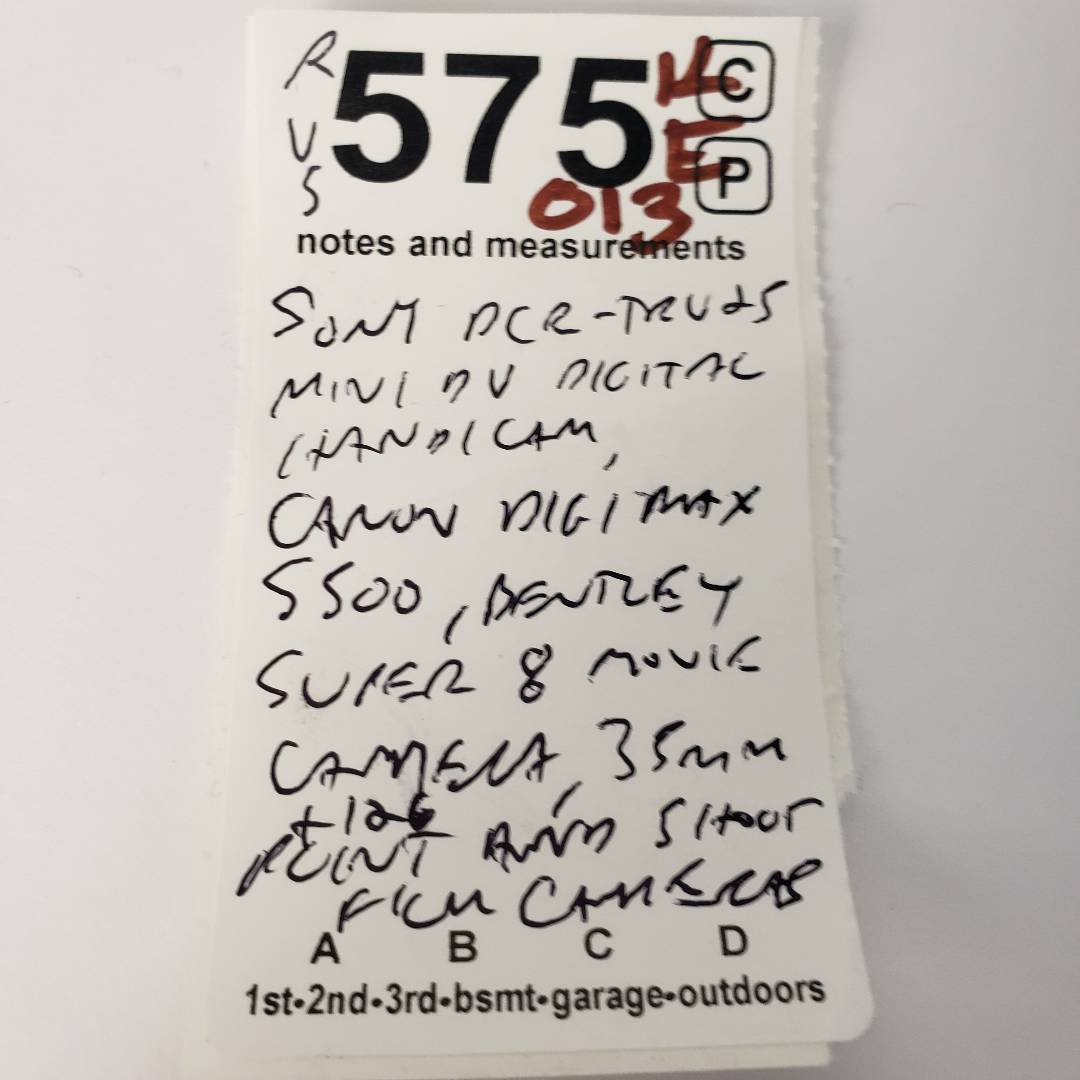 R
V
S
575
C
P
KE
013
notes and measurements
SONY DCR-TRV25
MINI DV DIGITAL
HANDICAM,
CANON DIGIMAX
5500, BENTLEY
SUPER 8 MOVIE
CAMERA, 35mm
+126
POINT AND SHOOT
FILM CAMERAS
A B C D
1st•2nd•3rd•bsmt•garage•outdoors